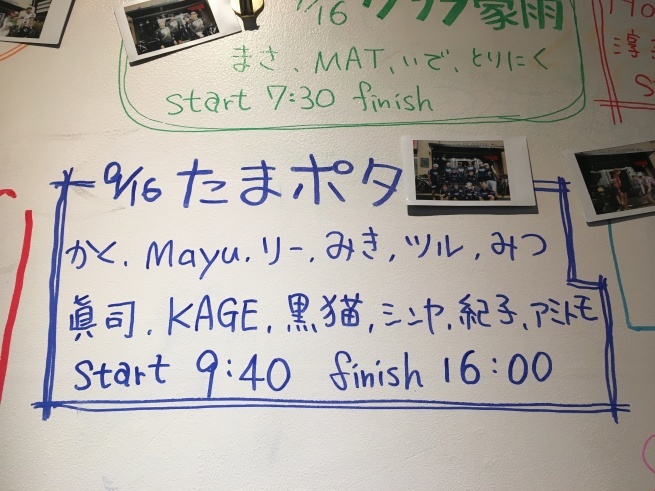 /16 クラブ家雨
まさ、MAT、いで、とりにく
start 7:30 finish
淳
9/16 たまポタ
かく、Mayu、リー、みき、ツル、みつ
眞司、KAGE、黒猫、シンヤ、紀子、アミトモ
start 9:40 finish 16:00